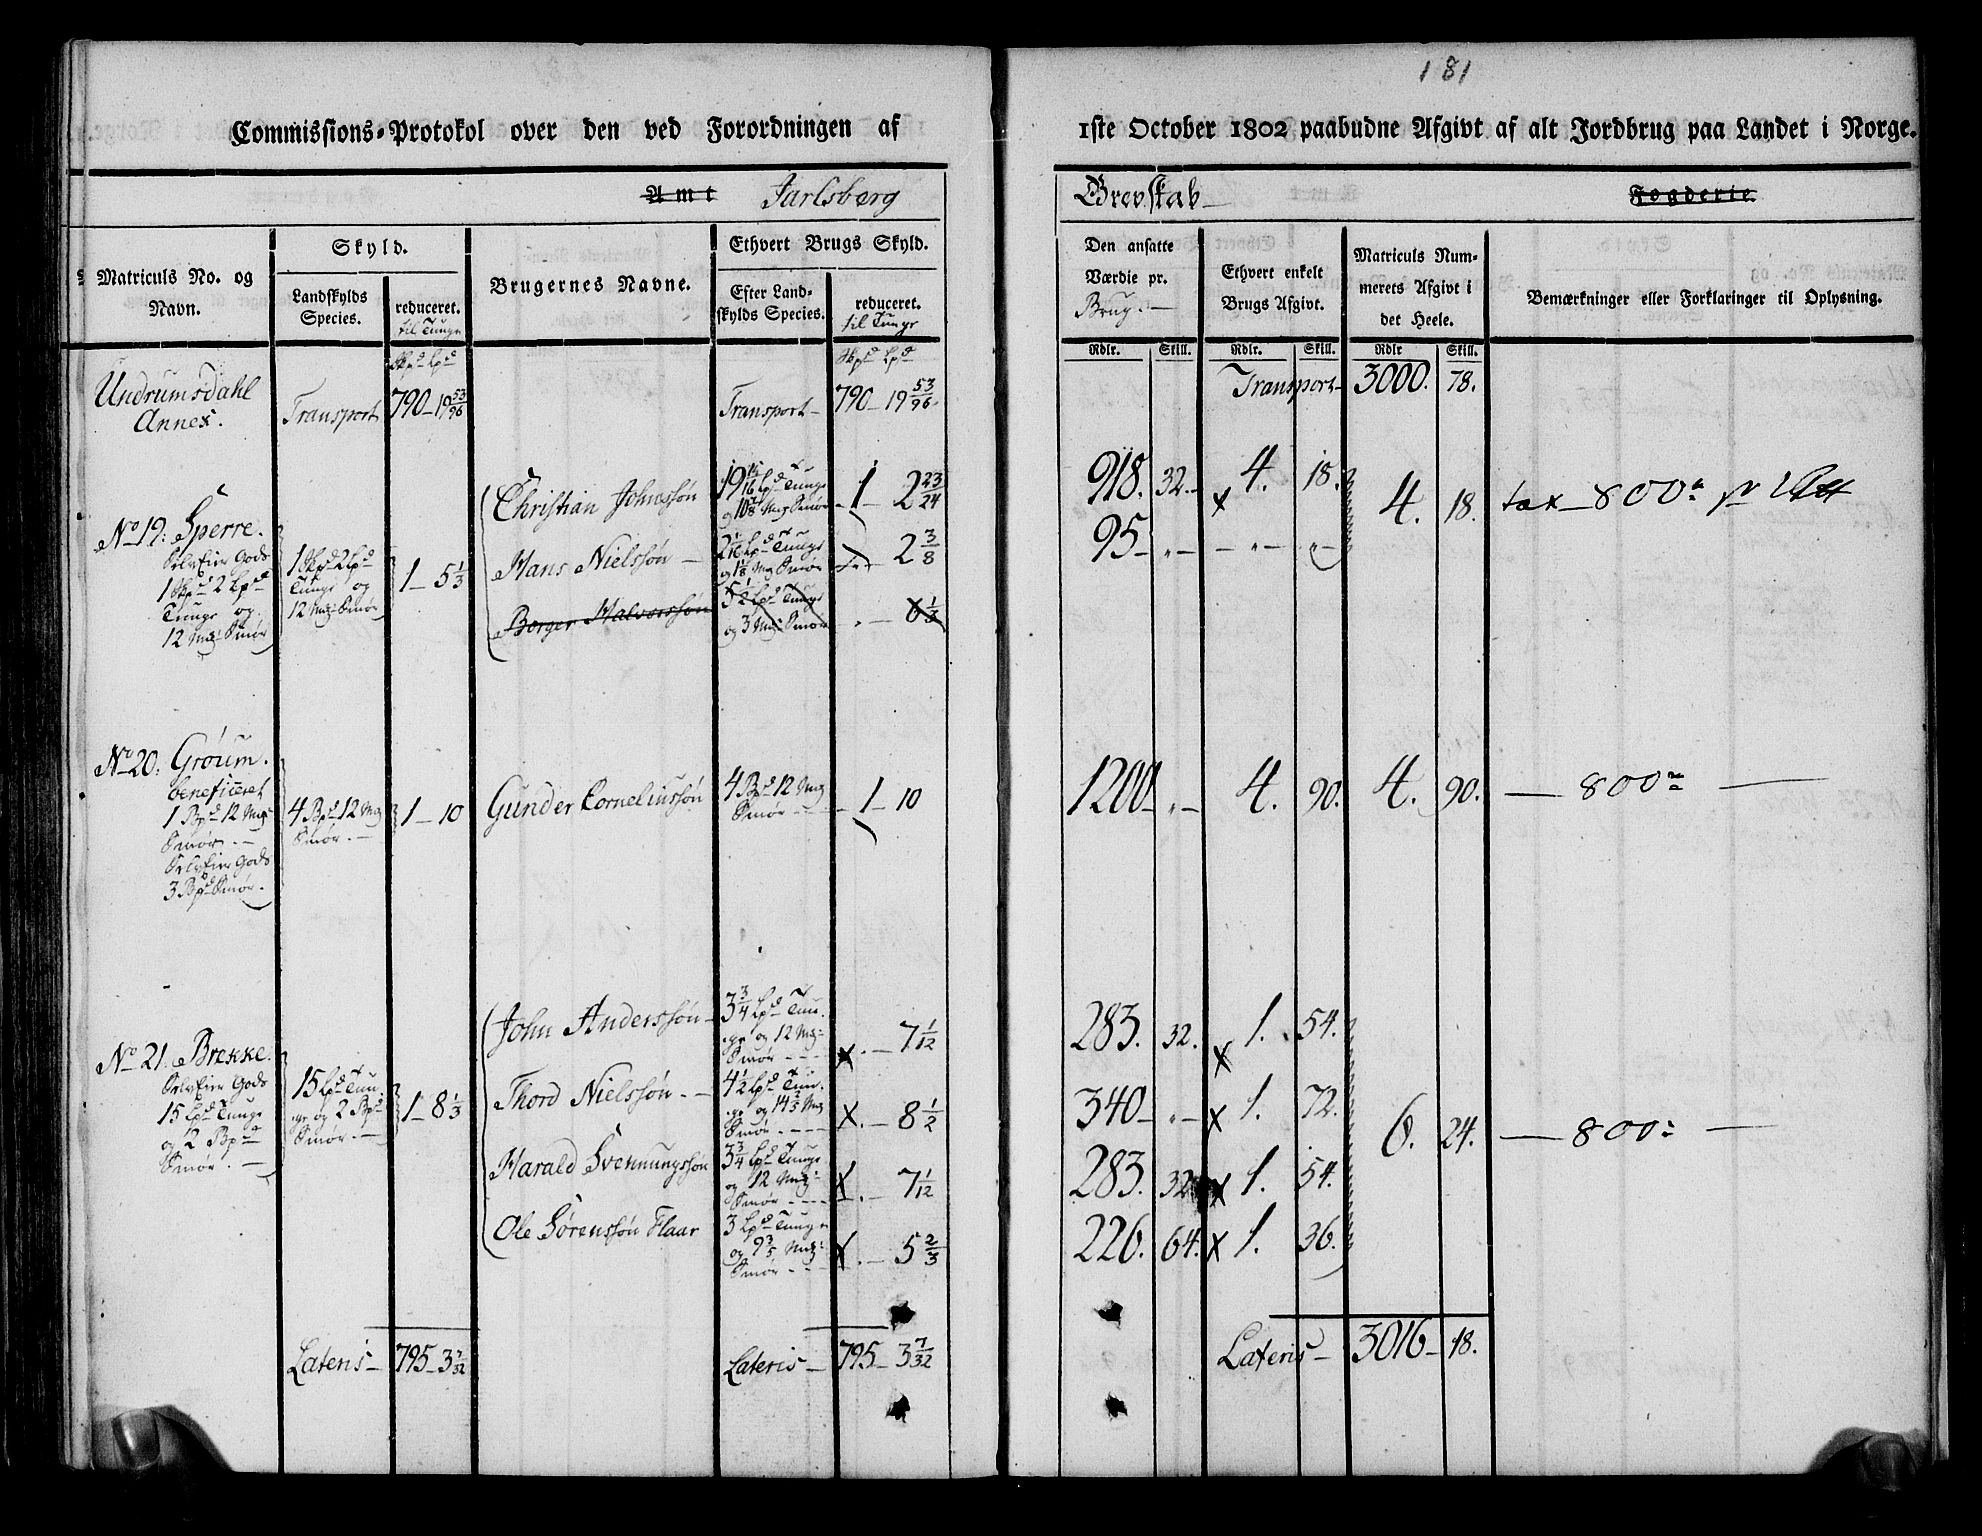 181
Commissions-Protokol over den ved Forordningen af 1ste October 1802 paabudne Afgivt af alt Jordbrug paa Landet i Norge.
Amt Jarlsberg Grevskab Fogderie
Matriculs No. og Navn.
Skyld.
Landskylds Species.
reduceret. til Tunge
Brugernes Navne.
Ethvert Brugs Skyld.
Efter Landskylds Species.
reduceret. til Tunge
Den ansatte Værdie pr. Brug.
Ethvert enkelt Brugs Afgivt.
Matriculs Nummerets Afgivt i det Heele.
Bemærkninger eller Forklaringer til Oplysning.
Skpd Lpd Skpd Lpd
Rdlr. Skill. Rdlr. Skill. Rdlr Skill.
Undrumsdahl Annex.
Transport 790 - 19 53/96
Transport - 790 - 19 53/96
Transport - 3000. 78.
No 19: Sperre.
Selveier Gods
1 Skpd 2 Lpd
Tunge og
12 Mg Smør
1 Skpd 2 Lpd
Tunge og
12 Mg Smør
1 - 5 1/3
Christian Johnssøn
19 15/16 Lpd Tunge
og 10 7/8 Mg Smør
1 - 2 23/24
918. 32. 4. 18. 4. 18. tax - 800
Hans Nielssøn -
2 1/16 Lpd Tunge
og 1 1/8 Mg Smør
2 3/8
95 - „ - - „ - „ -
Borger Halvorssøn
5 1/2 Lpd Tunge
og 3 Mg Smør
. - 6 1/3
No 20: Grøum.
beneficeret
1 Bpd 12 Mg
Smør. -
Selveier Gods
3 Bpd Smør.
4 Bpd 12 Mg
Smør. -
1 - 10
Gunder Corneliussøn
4 Bpd 12 Mg
Smør
1 - 10
1200 - „ - 4. 90. 4. 90. - 800 -
No 21. Brekke.
Selveier Gods
15 Lpd Tunge
og 2 Bpd
Smør. -
15 Lpd Tun-
ge og 2 Bpd
Smør. -
1 - 8 1/3
John Anderssøn -
3 3/4 Lpd Tun-
ge og 12 Mg
Smør
x . - 7 1/12
283. 32. x 1. 54.
Thord Nielssøn -
4 1/2 Lpd Tun-
ge og 14 2/5 Mg
Smør
x . - 8 1/2
340 - „ - x 1. 72. 6. 24. - 800 -
Harald Svennungssøn
3 3/4 Lpd Tunge
og 12 Mg
Smør
x . - 7 1/12
283. 32. x 1. 54.
Ole Sørenssøn Flaar
3 Lpd Tunge
og 9 3/5 Mg
Smør
x . - 5 2/3
226. 64. x 1. 36.
Lateris - 795 - 3 7/32
Lateris - 795 - 3 7/32
Lateris - 3016 - 18.